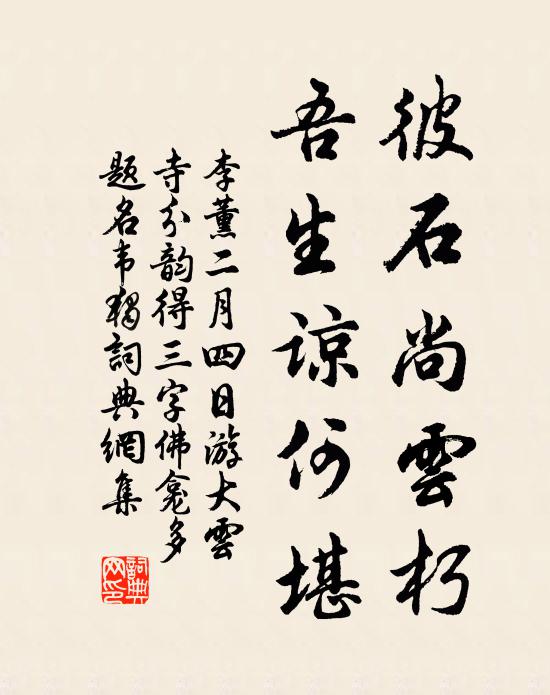 彼石尚雲朽
吾生谅何堪
李薰二月四日游大雲
寺分韵得三字佛龛多
题名韦獨詞典網集
詞典
网印